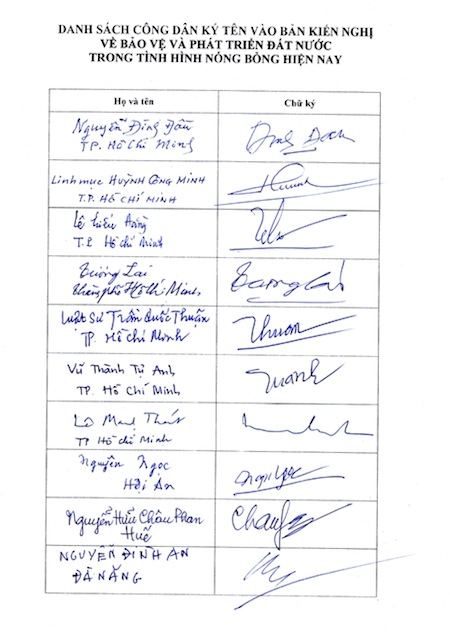 DANH SÁCH CÔNG DÂN KÝ TÊN VÀO BẢN KIẾN NGHỊ
VỀ BẢO VỆ VÀ PHÁT TRIỂN ĐẤT NƯỚC
TRONG TÌNH HÌNH NÓNG BỎNG HIỆN NAY
Họ và tên
Chữ ký
Nguyễn Đình Đầu
TP. Hồ Chí Minh
Linh mục HUỲNH CÔNG MINH
T.P. HỒ CHÍ MINH
Lê Hiếu Đằng
T.P Hồ Chí Minh
Tương Lai
Thành phố Hồ Chí Minh
Tuong Lai
Luật Sư Trần Quốc Thuận
TP. Hồ Chí Minh
Thuan
Vũ Thành Tự Anh
TP. Hồ Chí Minh
Lê Mạnh Thát
TP Hồ Chí Minh
Nguyên Ngọc
Hội An
Nguyễn Hữu Châu Phan
Huế
NGUYỄN ĐÌNH AN
ĐÀ NẴNG